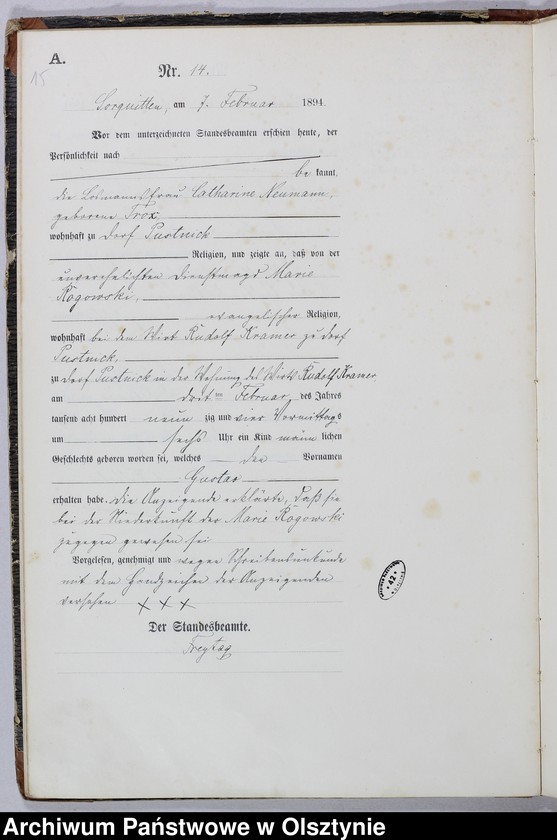 A.
15
Nr. 14.
Sorquitten, am 7. Februar 1894.
Vor dem unterzeichneten Standesbeamten erschien heute, der
Persönlichkeit nach
be kannt,
die Losmannsfrau Catharine Neumann,
geborene Trox,
wohnhaft zu Dorf Pustnick
Religion, und zeigte an, daß von der
unverehelichten Dienstmagd Marie
Rogowski,
evangelischer Religion,
wohnhaft bei dem Wirt Rudolf Kramer zu Dorf
Pustnick,
zu Dorf Pustnick in der Wohnung des Wirts Rudolf Kramer,
am Februar, des Jahres
tausend acht hundert neun zig und vier Vormittags
um sechs Uhr ein Kind männ lichen
Geschlechts geboren worden sei, welches den Vornamen
Gustav
erhalten habe. Die Anzeigende erklärte, daß sie
bei der Niederkunft der Marie Rogowski
zugegen gewesen sei
Vorgelesen, genehmigt und wegen Schreibensunkunde
mit dem Handzeichen der Anzeigenden
versehen XXX
Der Standesbeamte.
Freytag
42
Archiwum Państwowe w Olsztynie